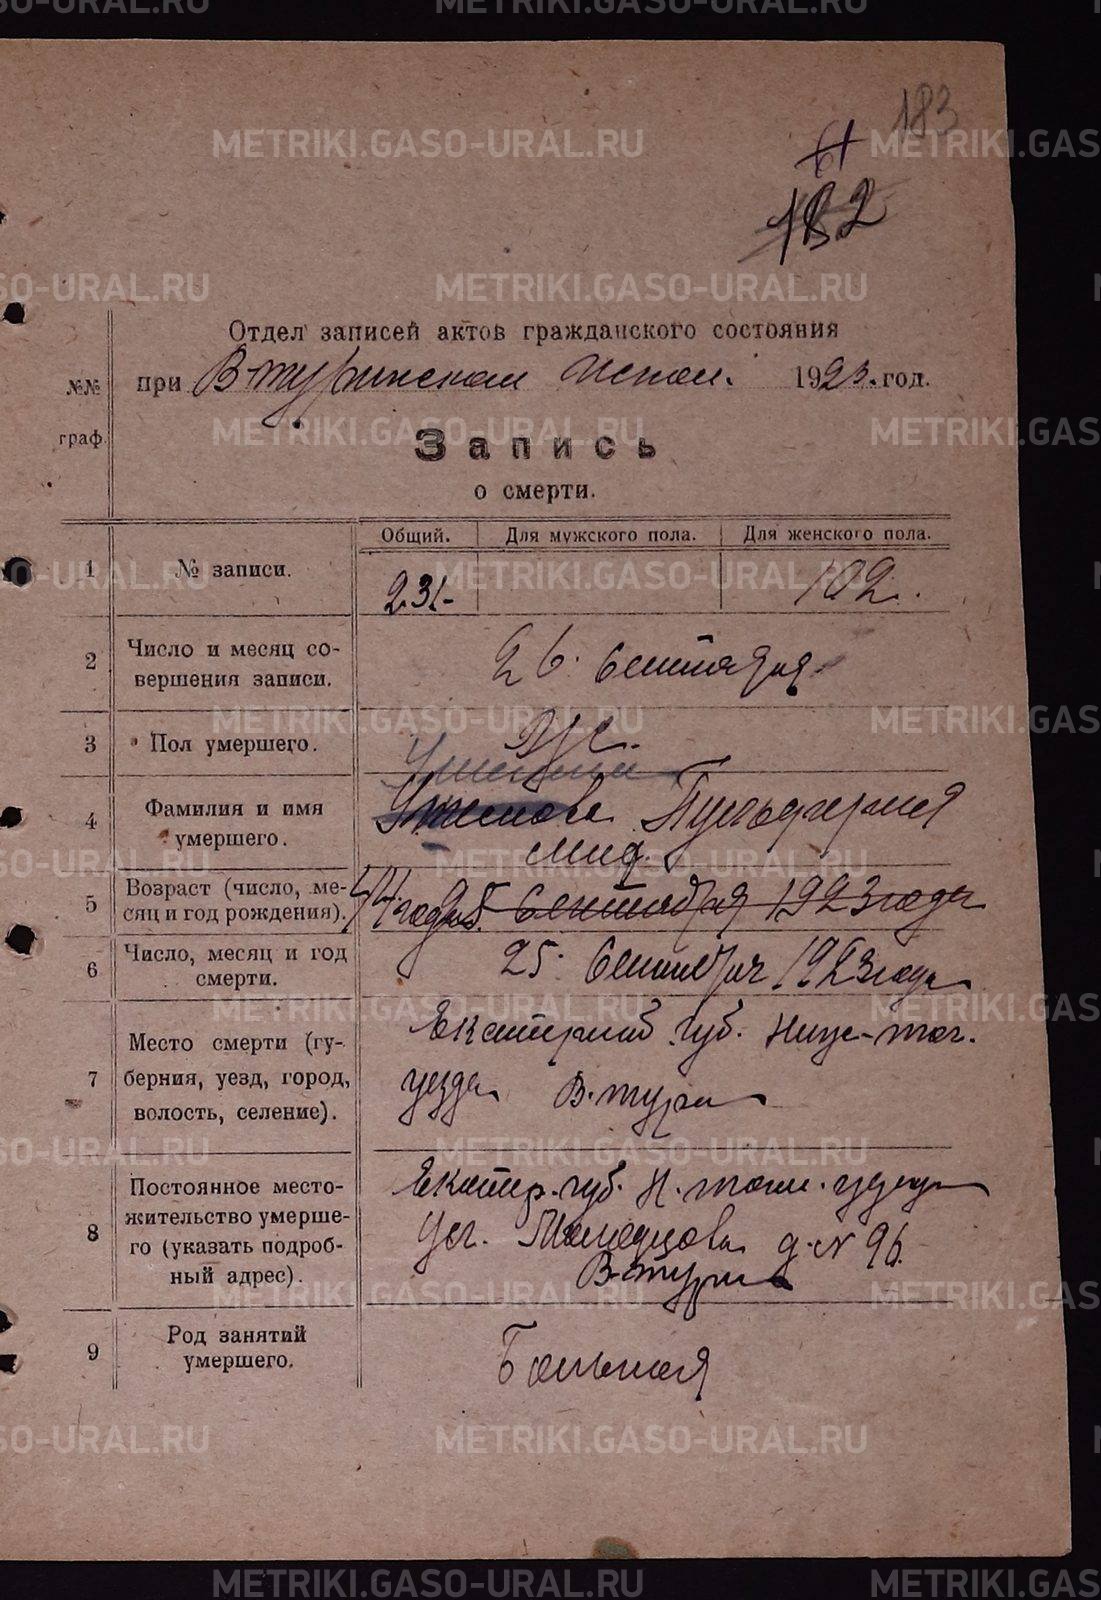 183
61
182
Отдел записей актов гражданского состояния
при В-туринском Испол. 1923. год.
№№
граф.
Запись
о смерти.
Общий. Для мужского пола. Для женского пола.
1 № записи. 231. 102.
2 Число и месяц со-
вершения записи.
26. Сентября
3 Пол умершего. Же.
4 Фамилия и имя
умершего.
5 Возраст (число, ме-
сяц и год рождения).
44 года 25 Сентября 1923 года
6 Число, месяц и год
смерти.
25. Сентября 1923 года
7 Место смерти (гу-
берния, уезд, город,
волость, селение).
Екатеринб губ. Ниж-таг.
уезда В.тура
8 Постоянное место-
жительство умерше-
го (указать подроб-
ный адрес).
Екатер. губ. Н. таги. уезда
Ул. Молодцова д. № 96.
В-тура
9 Род занятий
умершего.
Больная
METRIKI.GASO-URAL.RU